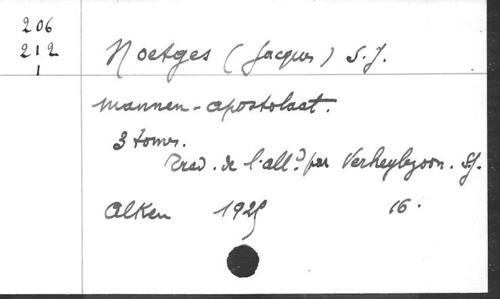 206
212
1
Noetges (Jacques) S.J.
Mannen-apostolaat.
3 tomes.
Trad. de l'alld par Verheylezoon. S.J.
Alken 1925 16.